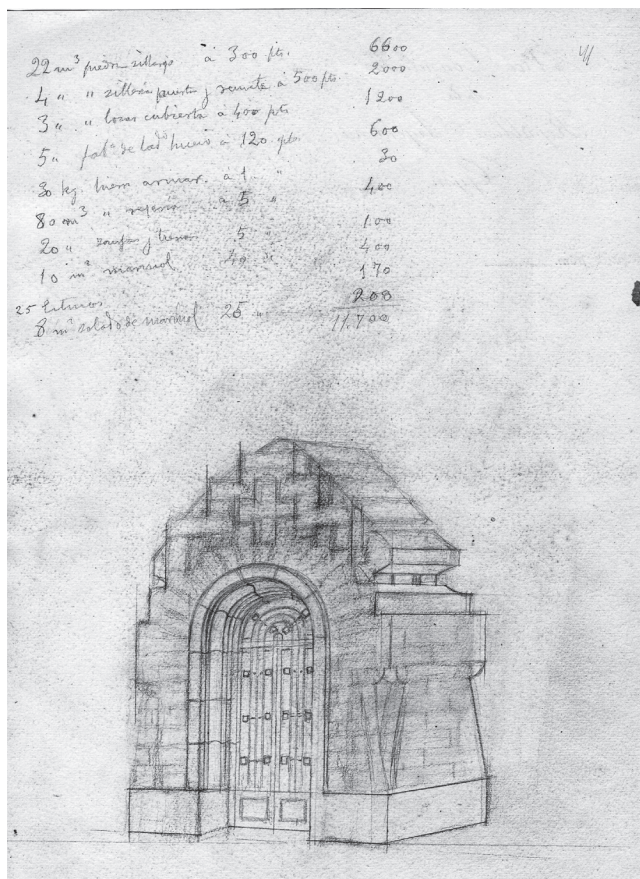 22 m³ piedra sillarejo à 300 pts. 6600
4 " " sillería puerta y remate à 500 pts. 2000
3 " " losas cubierta à 400 pts 1200
5 " fab.ª de lad.º hueco à 120 pts. 600
30 kg. hierro armar. à 1 " 30
80 m³ " à 5 " 400
20 " zanjas y 5 " 100
10 m² marmol 40 " 400
25 170
8 m² solado de marmol 25 " 200
11.700